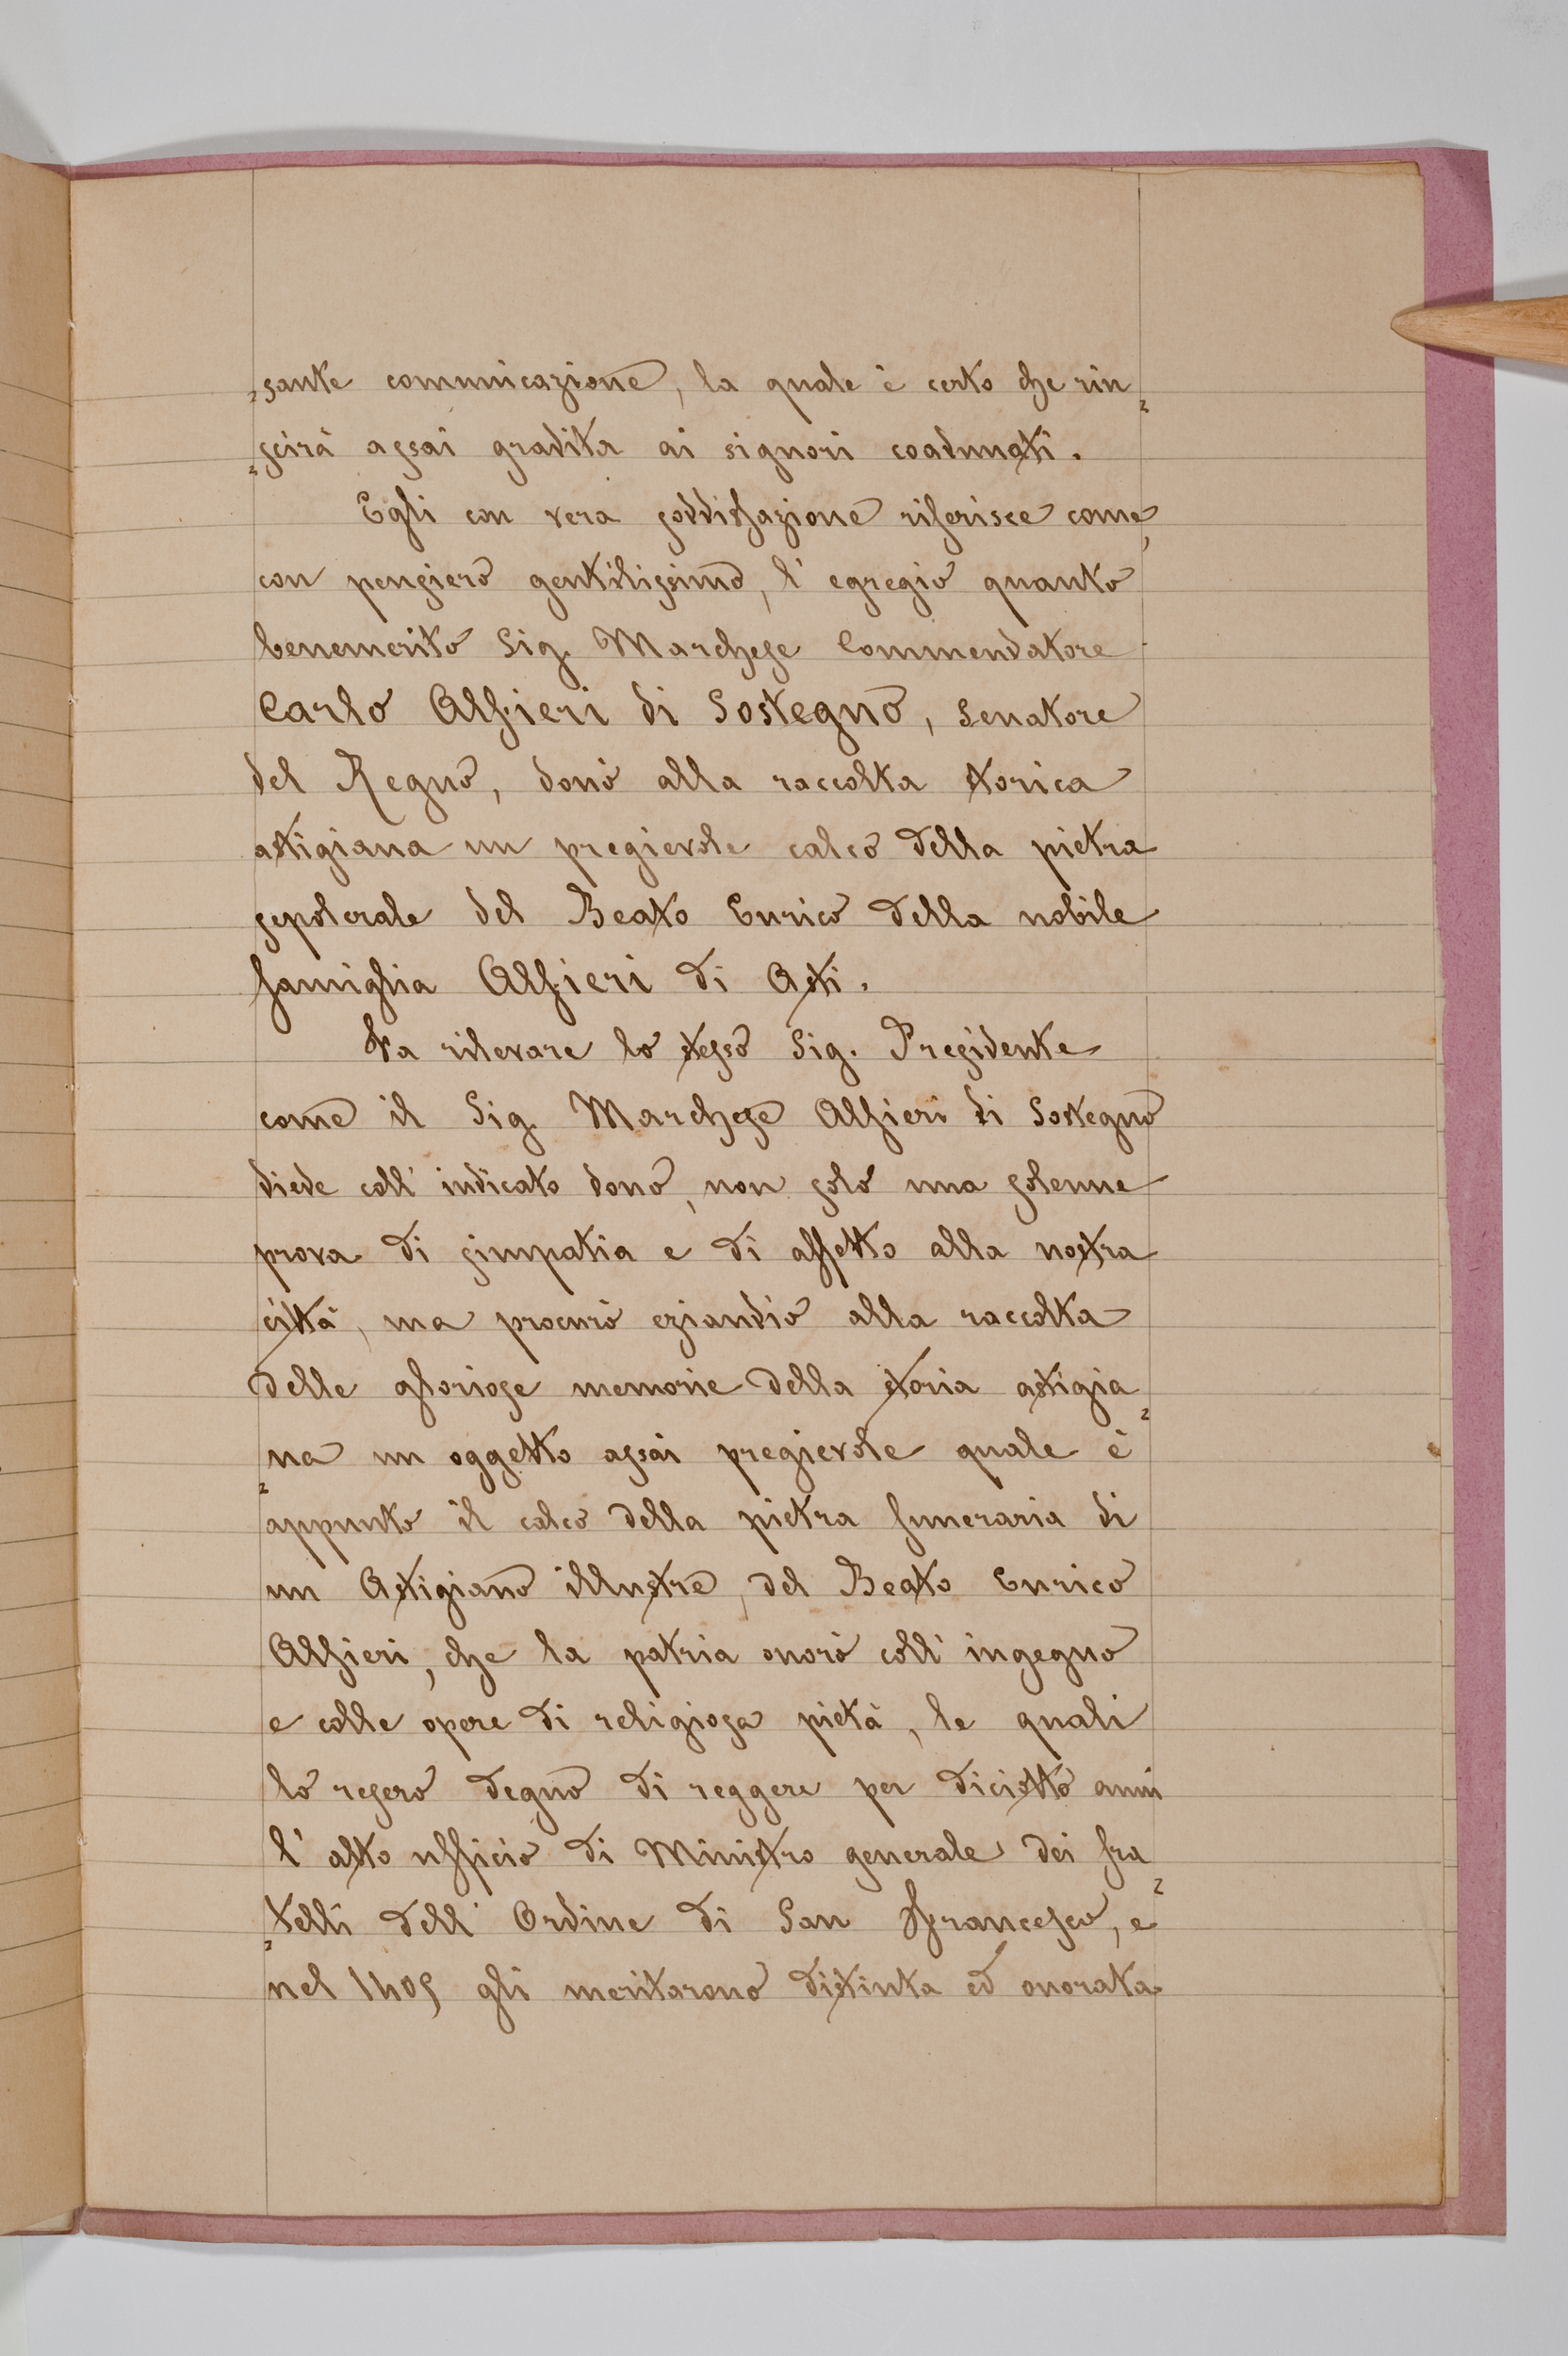 „sante comunicazione, la quale è certo che riu„
„scirà assai gradita ai signori coadunati.
Egli con vera soddisfazione riferisce come,
con pensiero gentilissimo, l'egregio quanto
benemerito Sig. Marchese Commendatore
Carlo Alfieri di Sostegno, Senatore
del Regno, donò alla raccolta storica
astigiana un pregievole calco della pietra
sepolcrale del Beato Enrico della nobile
famiglia Alfieri di Asti.
Fa rilevare lo stesso Sig. Presidente
come il Sig. Marchese Alfieri di Sostegno
diede coll'indicato dono, non solo una solenne
prova di simpatia e di affetto alla nostra
città, ma procurò eziandio alla raccolta
delle gloriose memorie della storia astigia„
„na un oggetto assai pregievole quale è
appunto il calco della pietra funeraria di
un Astigiano illustre, del Beato Enrico
Alfieri, che la patria onorò coll'ingegno
e colle opere di religiosa pietà, le quali
lo resero degno di reggere per diciotto anni
l'alto ufficio di Ministro generale dei fra„
„telli dell'Ordine di San Francesco, e
nel 1405 gli meritarono distinta ed onorata